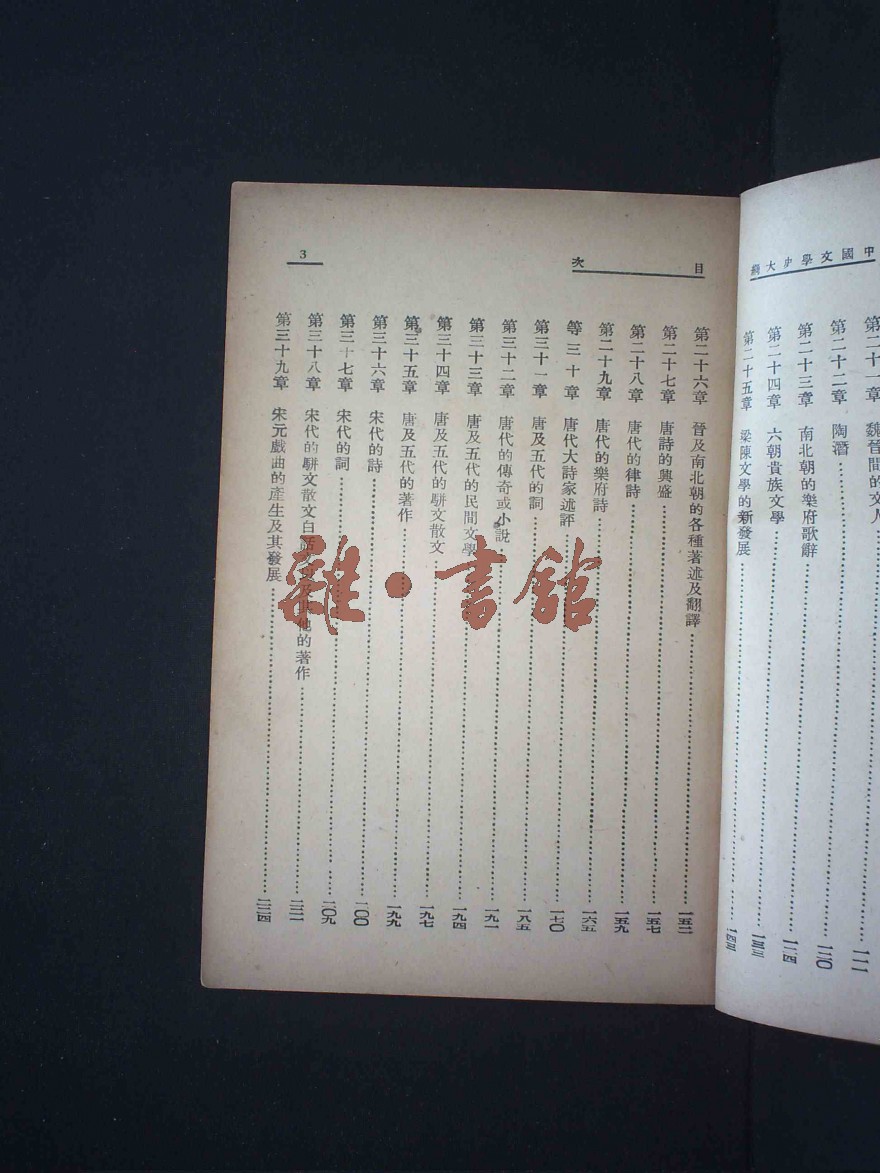 中國文學史大綱
第二十一章　魏晉間的文人
第二十二章　陶潛……一二〇
第二十三章　南北朝的樂府歌辭……一二四
第二十四章　六朝貴族文學……一三三
第二十五章　梁陳文學的新發展……一四三
目次
3
第二十六章　晉及南北朝的各種著述及翻譯……一五二
第二十七章　唐詩的興盛……一五七
第二十八章　唐代的律詩……一五九
第二十九章　唐代的樂府詩……一六五
等三十章　唐代大詩家述評……一七〇
第三十一章　唐及五代的詞……一八五
第三十二章　唐代的傳奇或小說……一九一
第三十三章　唐及五代的民間文學……一九四
第三十四章　唐及五代的駢文散文……一九七
第三十五章　唐及五代的著作……一九九
第三十六章　宋代的詩……二〇〇
第三十七章　宋代的詞……二〇九
第三十八章　宋代的駢文散文白話文及其他的著作……二二一
第三十九章　宋元戲曲的產生及其發展……二二四
雜·書館